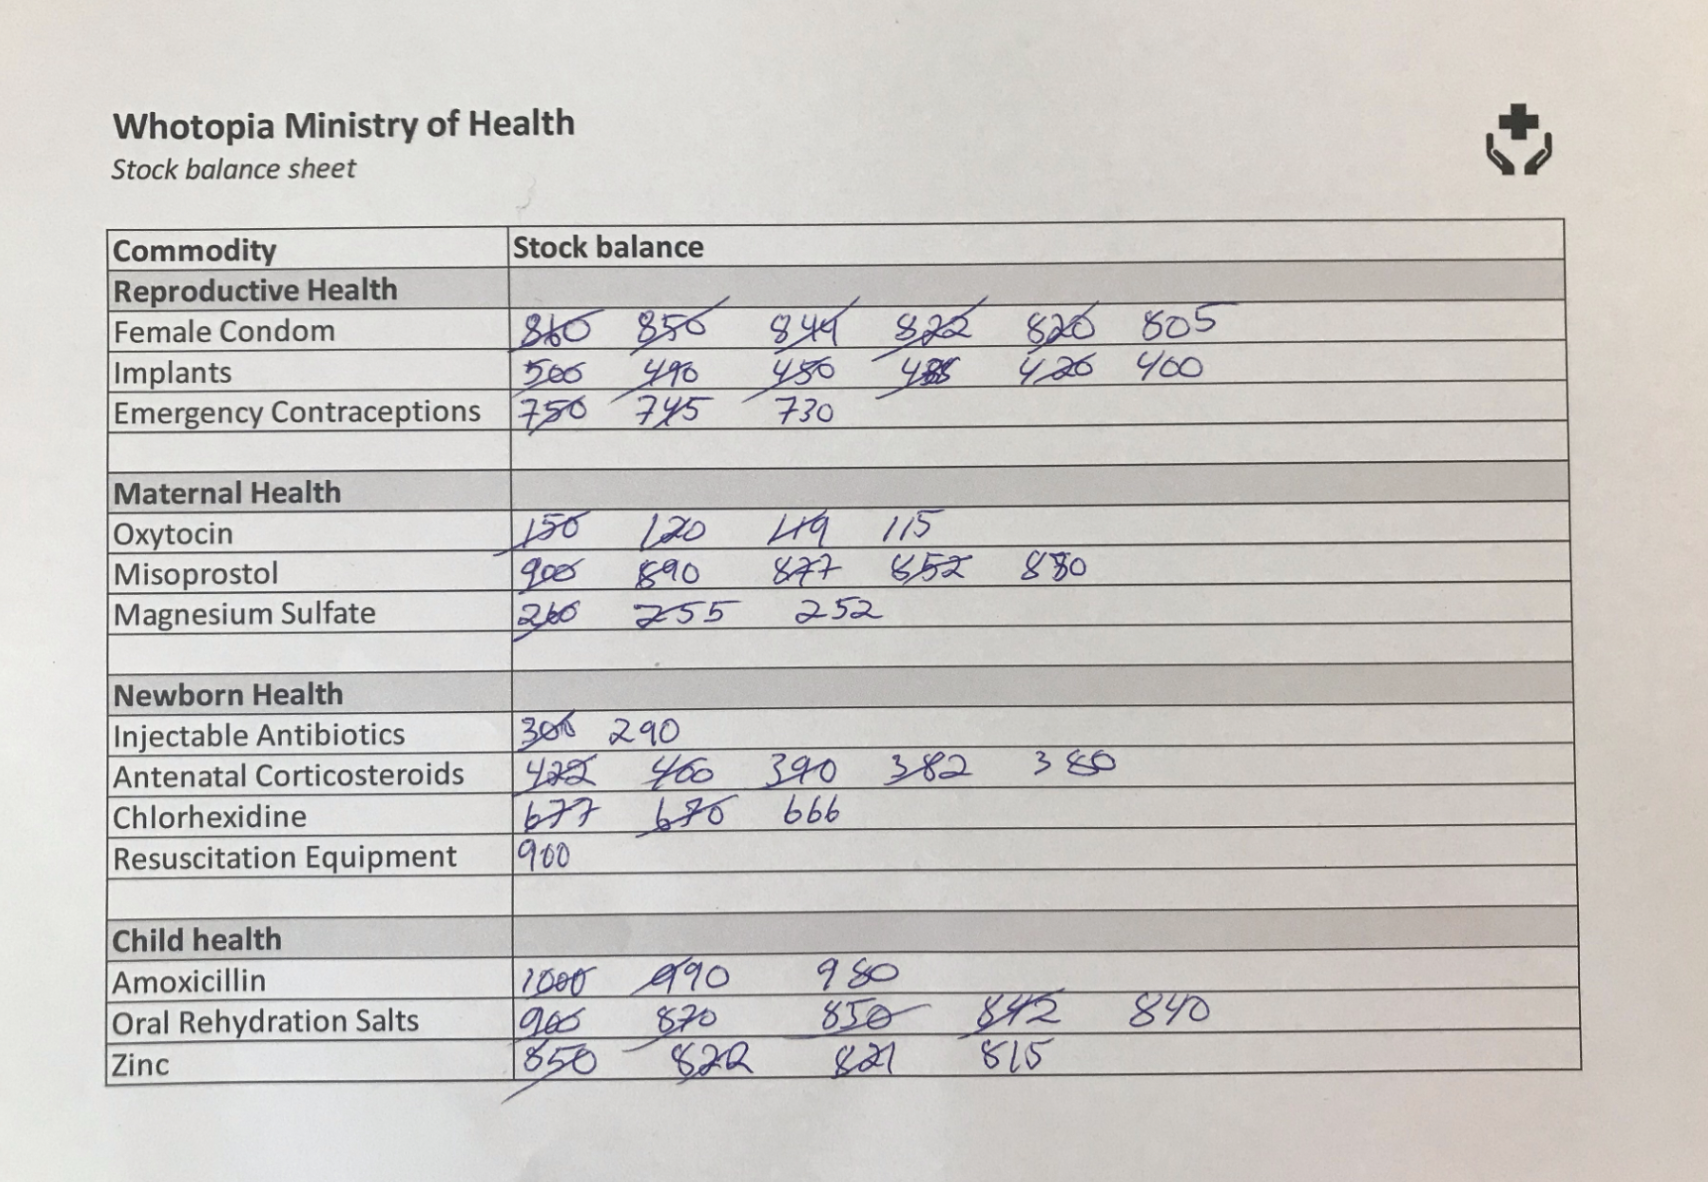 Whotopia Ministry of Health
Stock balance sheet
Commodity Stock balance
Reproductive Health
Female Condom 860 850 844 822 820 805
Implants 500 490 450 420 400
Emergency Contraceptions 750 745 730
Maternal Health
Oxytocin 150 120 119 115
Misoprostol 900 890 877 852
Magnesium Sulfate 260 255 252
Newborn Health
Injectable Antibiotics 300 290
Antenatal Corticosteroids 422 400 390 382 380
Chlorhexidine 677 670 666
Resuscitation Equipment 900
Child health
Amoxicillin 1000 990 980
Oral Rehydration Salts 900 870 850 842 840
Zinc 850 822 821 815